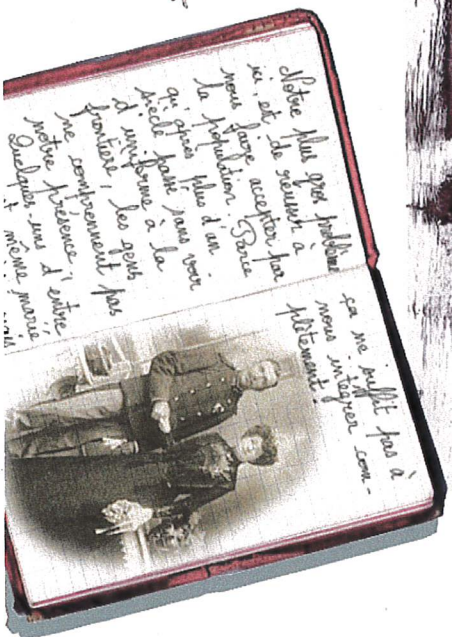 Notre plus gros problème
ici, est de réussir à
nous faire accepter par
la population. Parce
qu'après plus d'un
siècle passé sans voir
d'uniforme à la
frontière, les gens
ne comprennent pas
notre présence,
Quelques-uns d'entre
même marié
ça ne suffit pas à
nous intégrer com-
plètement.